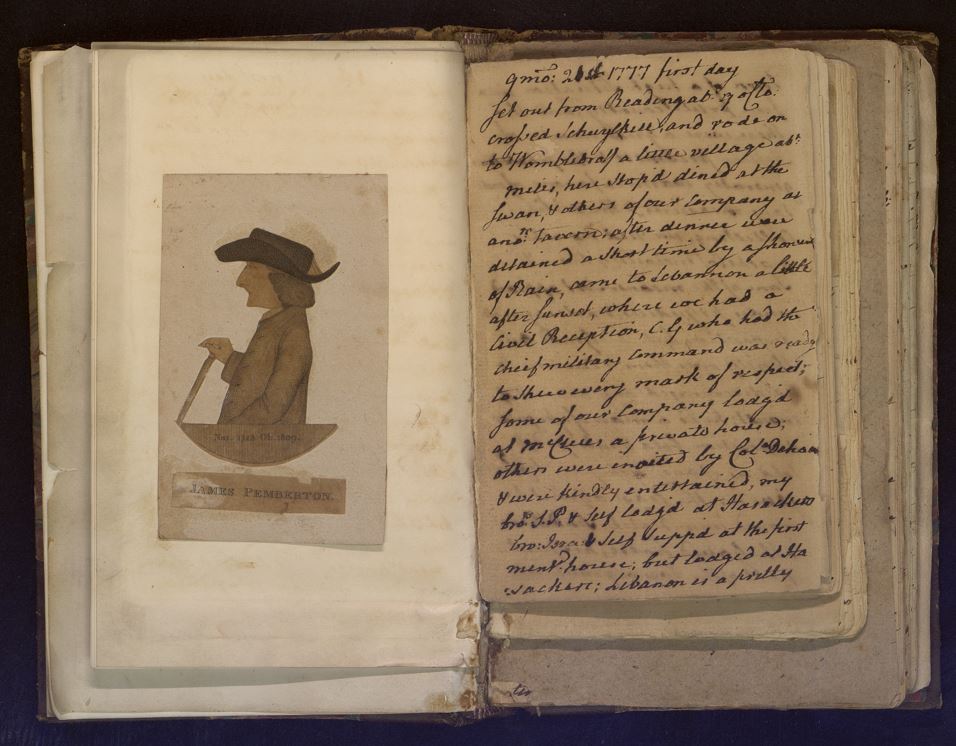 Nat. 1723 Ob. 1809.
JAMES PEMBERTON.
9mo: 21st 1777 first day
set out from Reading abt 9 oClo.
crossed Schuylkill, and rode on
to Womblebrass a little village abt.
miles, here stop'd dined at the
Swan, & others of our Company at
anor. tavern; after dinner were
detained a short time by a shower
of Rain, came to Lebannon a little
after sunset, where we had a
Civil Reception, C, G, who had the
chief military Command was ready
to shew every mark of respect;
some of our Company lodg'd
at a private house;
others were invited by Colo. Dehaas
& were kindly entertained, my
bro. I.P. & self lodg'd at
bro: Isra: & self supp'd at the first
ment.d house; but lodged at Ha
; Lebanon is a pretty